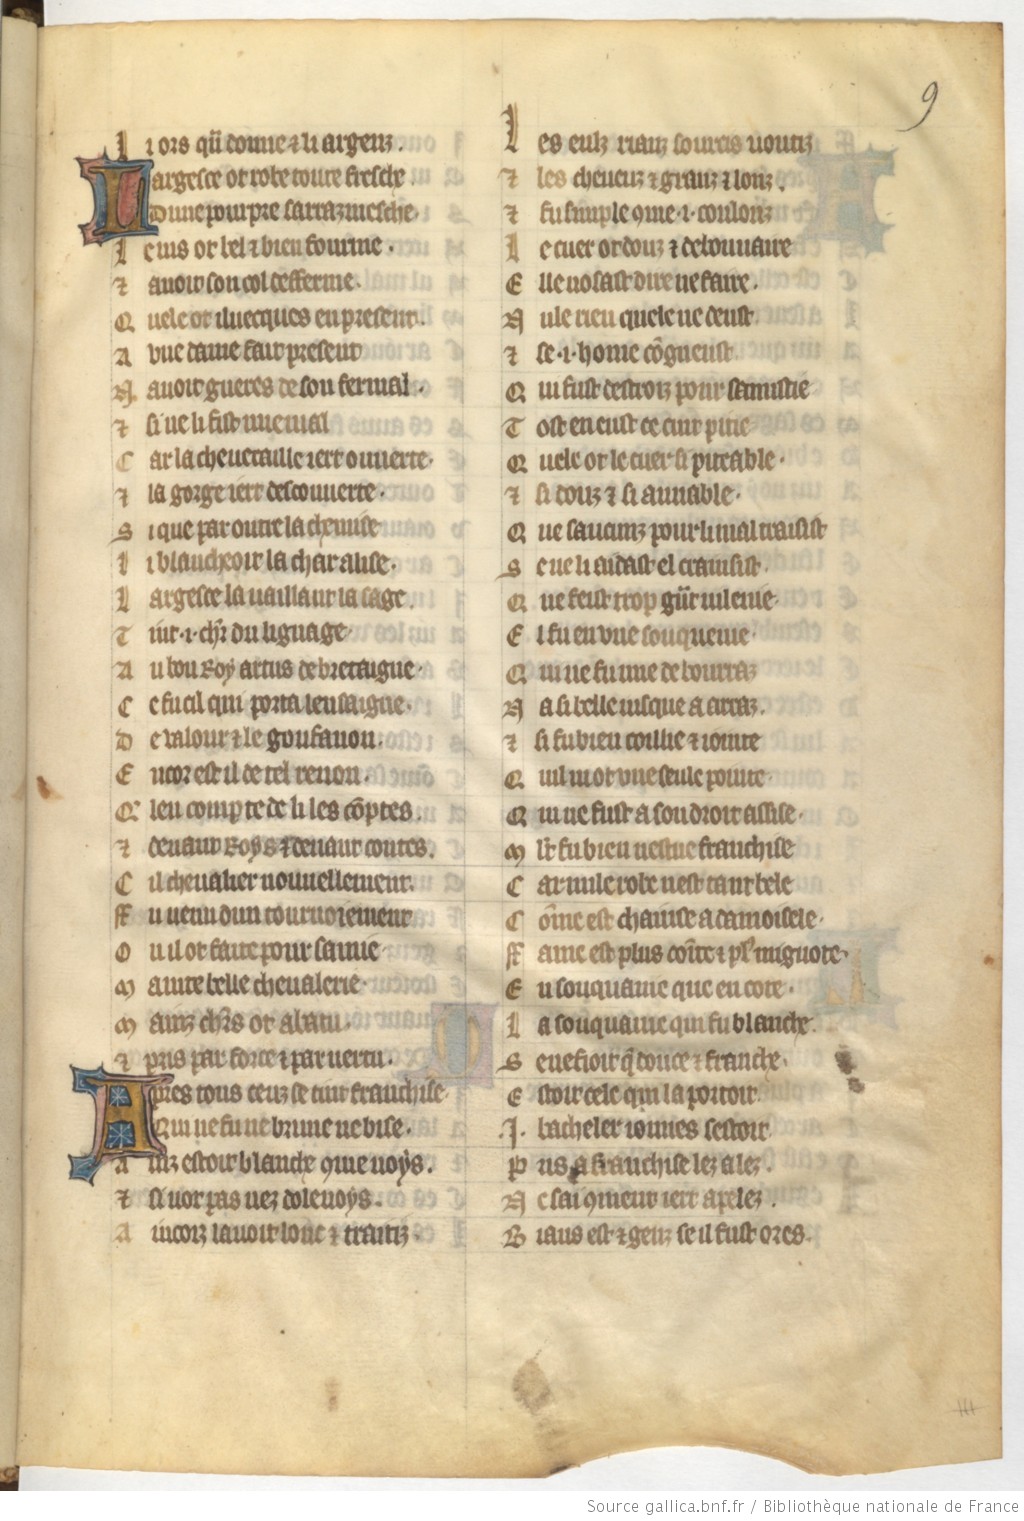 9
Li ors qͥl donne et li argenz.
Largesce ot robe toute fresche
Dune pourpre sarrazinesche.
Le vis ot bel et bien fourme.
et avoit son col desferme.
Quele ot iluecques en present.
A vne dame fait present
N avoit gueres de son fermal.
et si ne li sist mie mal
Car la cheveçaille iert ouuerte.
et la gorge iert descouuerte.
Si que par outre la chemise
Li blancheoit la char alise.
Largesce la vaillant la sage
Tint .i. chr̃ du lignage
Au bon Roy artus de bretaigne.
Ce fu cil qui porta lenseigne.
De valour et le gonfanon.
Encor est il de tel renon.
Q̃ len compte de li les cõptes.
et devant Roys et devant contes.
Cil chevalier nouuellement.
ffu venu dun tournoiement
Ou il ot faite pour samie
Mainte belle chevalerie.
Mainz chr̃s ot abatu.
et pris par force et par vertu.
Apres tous ceuz se tint franchise.
Qui ne fu ne brune ne bise.
Ainz estoit blanche 9me noys.
et si not pas nez dolenoys.
Aincoiz lavoit lonc et traitiz.
Les eulz rianz sourcis voutiz
et les cheveuz et granz et lonz.
et fu simple 9me .i. coulonz
Le cuer ot douz et debonnaire
Elle nosast dire ne faire.
Nule rien quele ne deust.
et se .i. home cõgneust
Qui fust destroiz pour samistie
Tost en eust ce cuit pitie
Quele ot le cuer si piteable.
et si douz et si amiable.
Que saucunz pour li mal traisist
Se ne li aidast el crainsist.
Que feist trop gñt vilenie.
El fu en vne souquenie
Qui ne fu mie de bourraz
Na si belle iusque a arraz.
et si fu bien coillie et iointe
Quil ni ot vne seule pointe.
Qui ne fust a son droit assise.
Ml̃t fu bien vestue franchise
Car nule robe nest tant bele
Cõme est chainse a damoisele.
ffame est plus cõite et pl9 mignote.
En souquanie que en cote.
La souquanie qui fu blanche.
Senefioit q̃ douce et franche.
Estoit cele qui la portoit.
.I. bacheler ionnes sestoit
Pris a franchise lez a lez.
Ne sai 9ment iert apelez.
Biaus est et genz se il fust ores.
Source gallica.bnf.fr / Bibliothèque nationale de France